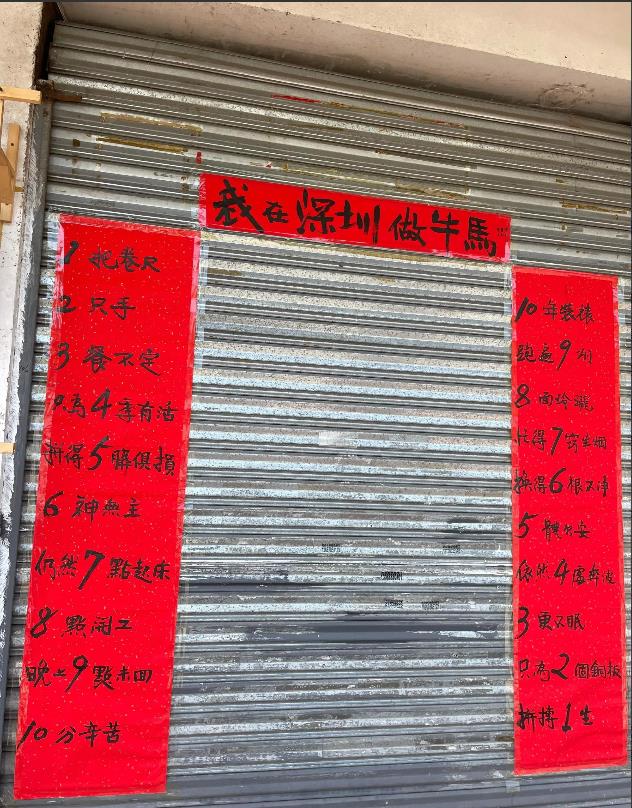 我在深圳做牛馬
1 把卷尺
2 只手
3 餐不定
只為4季有活
拼得5臟俱損
6 神無主
仍然7點起床
8 點開工
晚上9點未回
10分辛苦
10年裝裱
跑遍9州
8面玲瓏
忙得7窍生烟
換得6根不净
5體欠安
依然4處奔波
3更不眠
只為2個銅板
拼搏1生